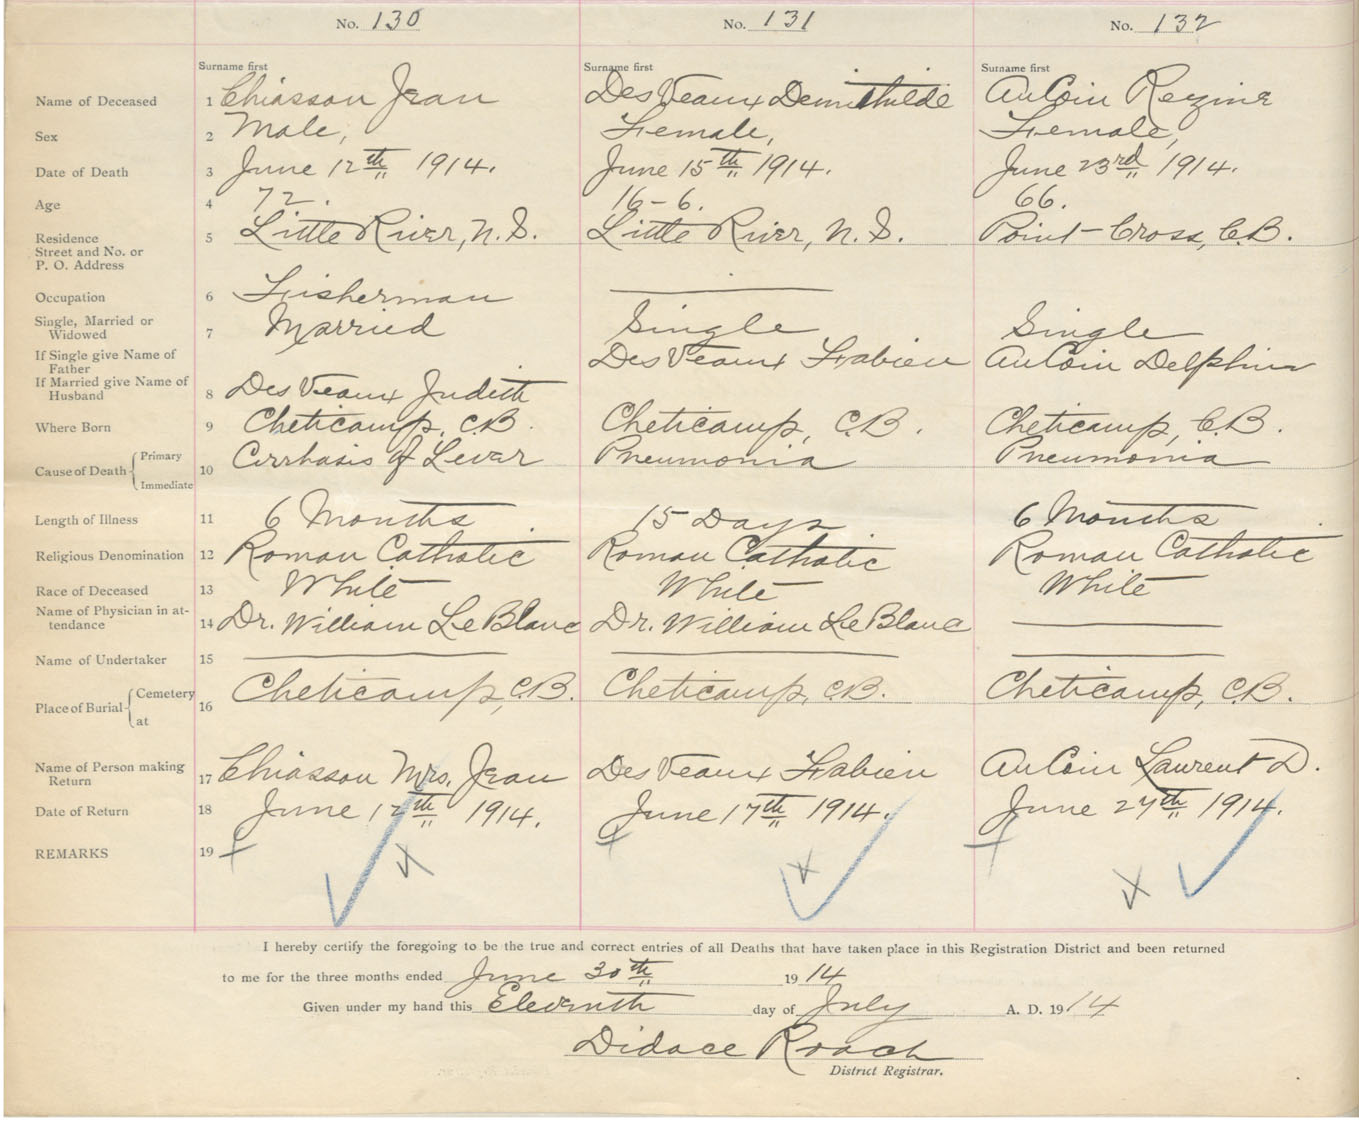 No. 130 No. 131 No. 132
Surname first Surname first Surname first
Name of Deceased 1 Chiasson Jean DesVeaux Demithilde AuCoin Regine
Sex 2 Male, Female, Female,
Date of Death 3 June 12th 1914. June 15th 1914. June 23rd 1914.
Age 4 72. 16-6. 66.
Residence 5 Little River, N.S. Little River, N.S. Point-Cross, C.B.
Street and No. or
P. O. Address
Occupation 6 Fisherman
Single, Married or
Widowed 7 Married Single Single
If Single give Name of
Father DesVeaux Fabien AuCoin Delphin
If Married give Name of
Husband 8 DesVeaux Judith
Where Born 9 Cheticamp, C.B. Cheticamp, C.B. Cheticamp, C.B.
Cause of Death Primary 10 Cirrhasis of Lever Pneumonia Pneumonia
Immediate
Length of Illness 11 6 Months 15 Days 6 Months
Religious Denomination 12 Roman Catholic Roman Catholic Roman Catholic
Race of Deceased 13 White White White
Name of Physician in at-
tendance 14 Dr. William LeBlanc Dr. William LeBlanc
Name of Undertaker 15
Place of Burial Cemetery 16 Cheticamp, C.B. Cheticamp, C.B. Cheticamp, C.B.
at
Name of Person making
Return 17 Chiasson Mrs. Jean DesVeaux Fabien AuCoin Laurent D.
Date of Return 18 June 17th 1914. June 17th 1914. June 27th 1914.
REMARKS 19
I hereby certify the foregoing to be the true and correct entries of all Deaths that have taken place in this Registration District and been returned
to me for the three months ended June 30th 1914
Given under my hand this Eleventh day of July A. D. 1914
Didace Roach
District Registrar.